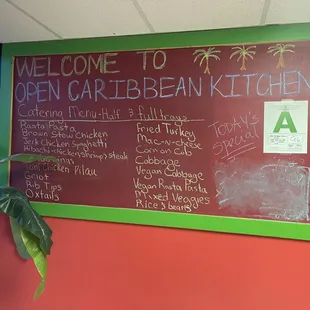 WELCOME TO
OPEN CARIBBEAN KITCHEN
Catering Menu-Half & full trays
Rasta Pasta
Brown Stew Chicken
Jerk Chicken Spaghetti
Hibachi-Chicken, Shrimp & steak
Chicken Pilau
Griot
Rib Tips
Oxtails
Fried Turkey
Mac-n-cheese
Corn on Cob
Cabbage
Vegan Cabbage
Vegan Rasta Pasta
Mixed Veggies
Rice & beans
TODAY'S
Special
A